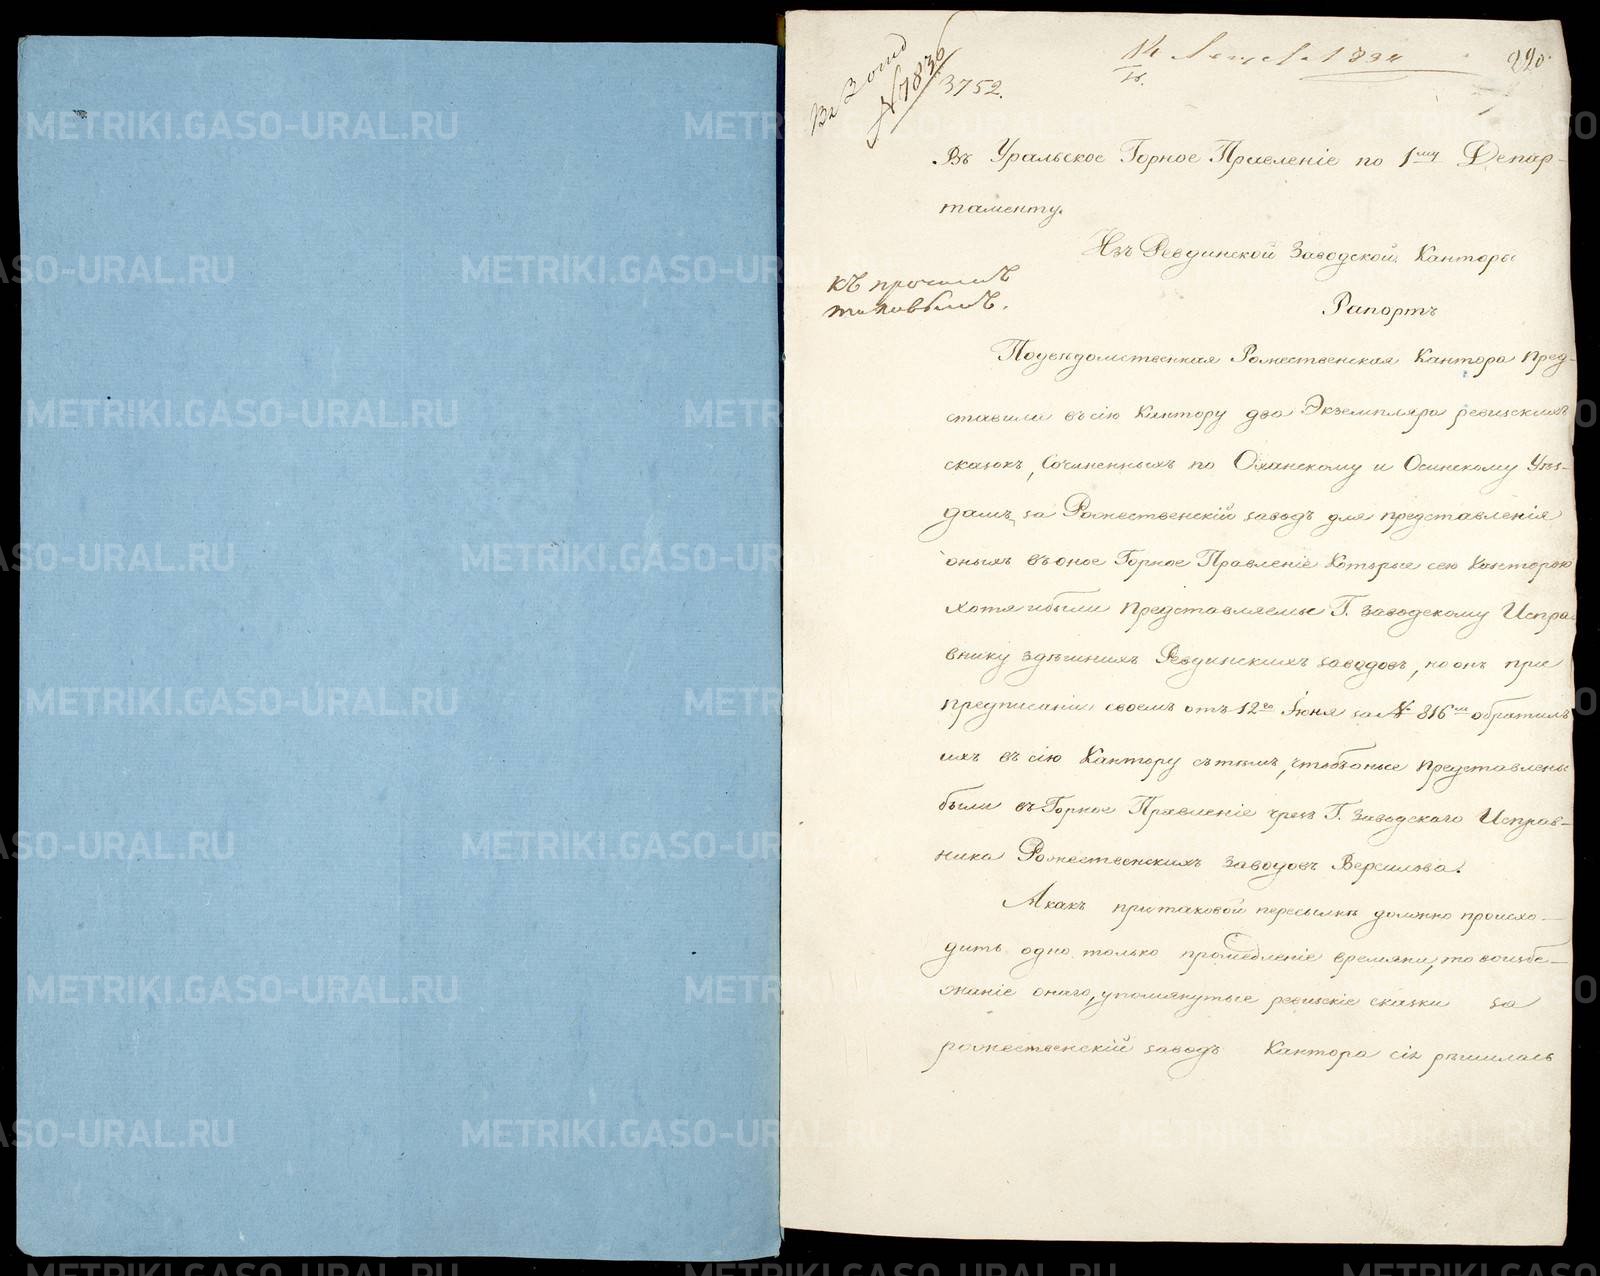 Въ 3 отд
№ 7836
3752.
14 1834
220.
Въ Уральское Горное Правленіе по 1му Депар-
таменту.
Изъ Ревдинской Заводской Канторы
Къ прочимъ
таковымъ.
Рапортъ
Подведомственная Рожественская Кантора пред-
ставила въ сію Кантору два Экземпляра ревискихъ
сказокъ, Сочиненныхъ по Оханскому и Осинскому Уѣз-
дамъ, за Рожественскій заводъ для представленія
оныхъ въ оное Горное Правленіе Которые сею Канторою
хотя и были представляемы Г. Заводскому Испра-
внику здѣшнихъ Ревдинскихъ заводовъ, но онъ при
предписаніи своемъ отъ 12го Іюня за № 816м обратилъ
ихъ въ сію Кантору стѣмъ, чтобъ оные представлены
были въ Горное Правленіе чрезъ Г. Заводскаго Исправ-
ника Рожественскихъ заводовъ Версилова.
А какъ при таковой пересылкѣ должно происхо-
дить одно только промедленіе времяни, то во избе-
жаніе онаго, упомянутые ревискіе сказки за
рожественскій заводъ Кантора сія рѣшилась